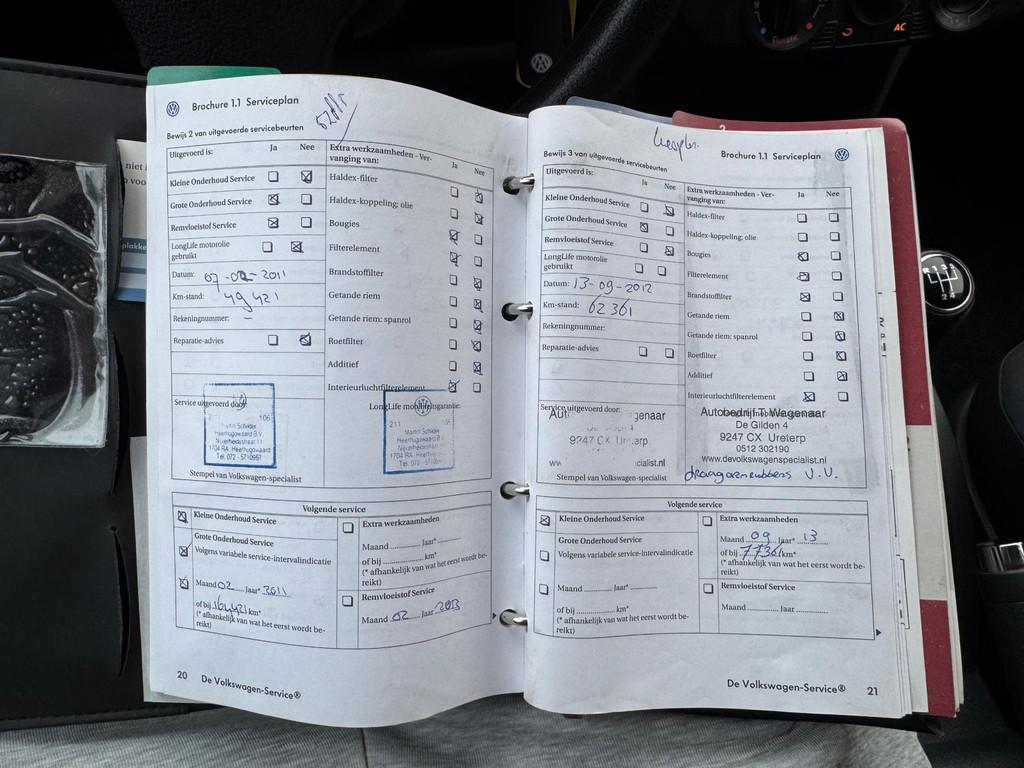 Brochure 1.1 Serviceplan
Bewijs 2 van uitgevoerde servicebeurten
Uitgevoerd is: Ja Nee
Kleine Onderhoud Service
Grote Onderhoud Service
Remvloeistof Service
LongLife motorolie gebruikt
Datum: 07-02-2011
Km-stand: 49421
Rekeningnummer: –
Reparatie-advies
Extra werkzaamheden - Ver-
vanging van: Ja Nee
Haldex-filter
Haldex-koppeling: olie
Bougies
Filterelement
Brandstoffilter
Getande riem
Getande riem: spanrol
Roetfilter
Additief
Interieurluchtfilterelement
Service uitgevoerd door:
Heerhugowaard B.V.
Nijverheidsstraat 11
1704 RA Heerhugowaard
Tel. 072 - 5710967
LongLife mobiliteitsgarantie:
211
Heerhugowaard B.V.
1704 RA
Tel. 072
Stempel van Volkswagen-specialist
Volgende service
Kleine Onderhoud Service
Grote Onderhoud Service
Volgens variabele service-intervalindicatie
Maand 02 Jaar* 2011
of bij km*
(* afhankelijk van wat het eerst wordt be-
reikt)
Extra werkzaamheden
Maand Jaar*
of bij km*
(* afhankelijk van wat het eerst wordt be-
reikt)
Remvloeistof Service
Maand 02 Jaar 2013
20 De Volkswagen-Service®
Brochure 1.1 Serviceplan
Bewijs 3 van uitgevoerde servicebeurten
Uitgevoerd is: Ja Nee
Kleine Onderhoud Service
Grote Onderhoud Service
Remvloeistof Service
LongLife motorolie
gebruikt
Datum: 13-09-2012
Km-stand: 62361
Rekeningnummer:
Reparatie-advies
Extra werkzaamheden - Ver-
vanging van: Ja Nee
Haldex-filter
Haldex-koppeling: olie
Bougies
Filterelement
Brandstoffilter
Getande riem
Getande riem: spanrol
Roetfilter
Additief
Interieurluchtfilterelement
Service uitgevoerd door:
9247 CX Ureterp
Stempel van Volkswagen-specialist
Autobedrijf Wagenaar
De Gilden 4
9247 CX Ureterp
0512 302190
www.devolkswagenspecialist.nl
draagarmrubbers V.V.
Volgende service
Kleine Onderhoud Service
Grote Onderhoud Service
Volgens variabele service-intervalindicatie
Maand Jaar*
of bij km*
(* afhankelijk van wat het eerst wordt be-
reikt)
Extra werkzaamheden
Maand 09 Jaar* 13
of bij 77361 km*
(* afhankelijk van wat het eerst wordt be-
reikt)
Remvloeistof Service
Maand Jaar
De Volkswagen-Service® 21
AC